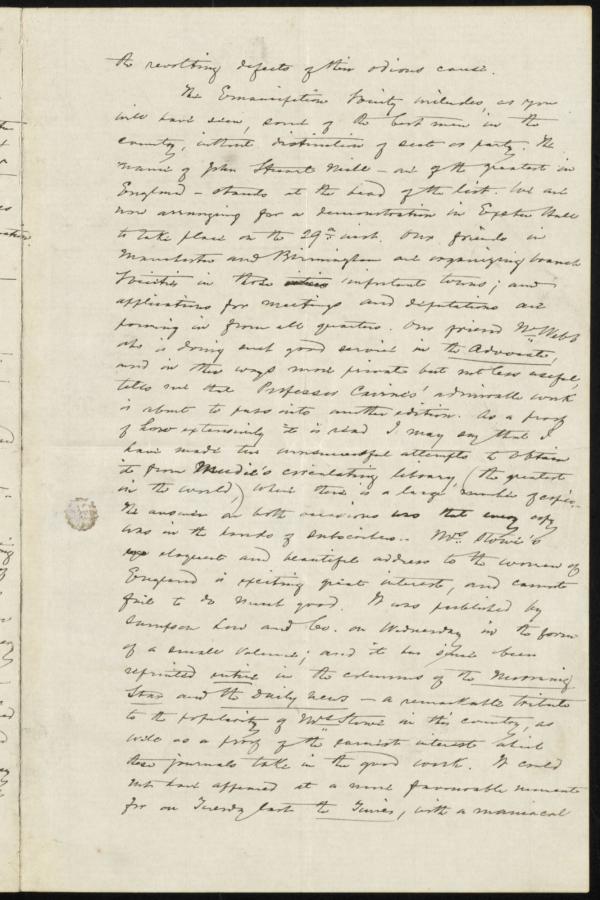 the revolting defects of their odious cause.
The Emancipation Society includes, as you
will have seen, some of the best men in the
country, without distinction of sect or party. The
name of John Stuart Mill - one of the greatest in
England - stands at the head of the list. We are
now arranging for a demonstration in Exeter Hall
to take place on the 29th inst. Our friends in
Manchester and Birmingham are organizing branch
Societies in those cities important towns; and
applications for meetings and deputations are
pouring in from all quarters. Our friend Mr Webb
who is doing such good service in the Advocate,
and in other ways more private but not less useful,
tells me that Professor Cairnes' admirable work
is about to pass into another edition. As a proof
of how extensively it is read I may say that I
have made two unsuccessful attempts to obtain
it from Mudie's circulating library (the greatest
in the world) where there is a large number of copies.
The answer on both occasions was that every copy
was in the hands of subscribers. Mrs. Stowe's
eloquent and beautiful address to the women of
England is exciting great interest, and cannot
fail to do much good. It was published by
Sampson Low and Co. on Wednesday in the form
of a small volume; and it has since been
reprinted entire in the columns of the Morning
Star and the Daily News - a remarkable tribute
to the popularity of Mrs Stowe in this country, as
well as a proof of the earnest interest which
these journals take in the good work. It could
not have appeared at a more favourable moment
for on Tuesday last the Times, with a maniacal